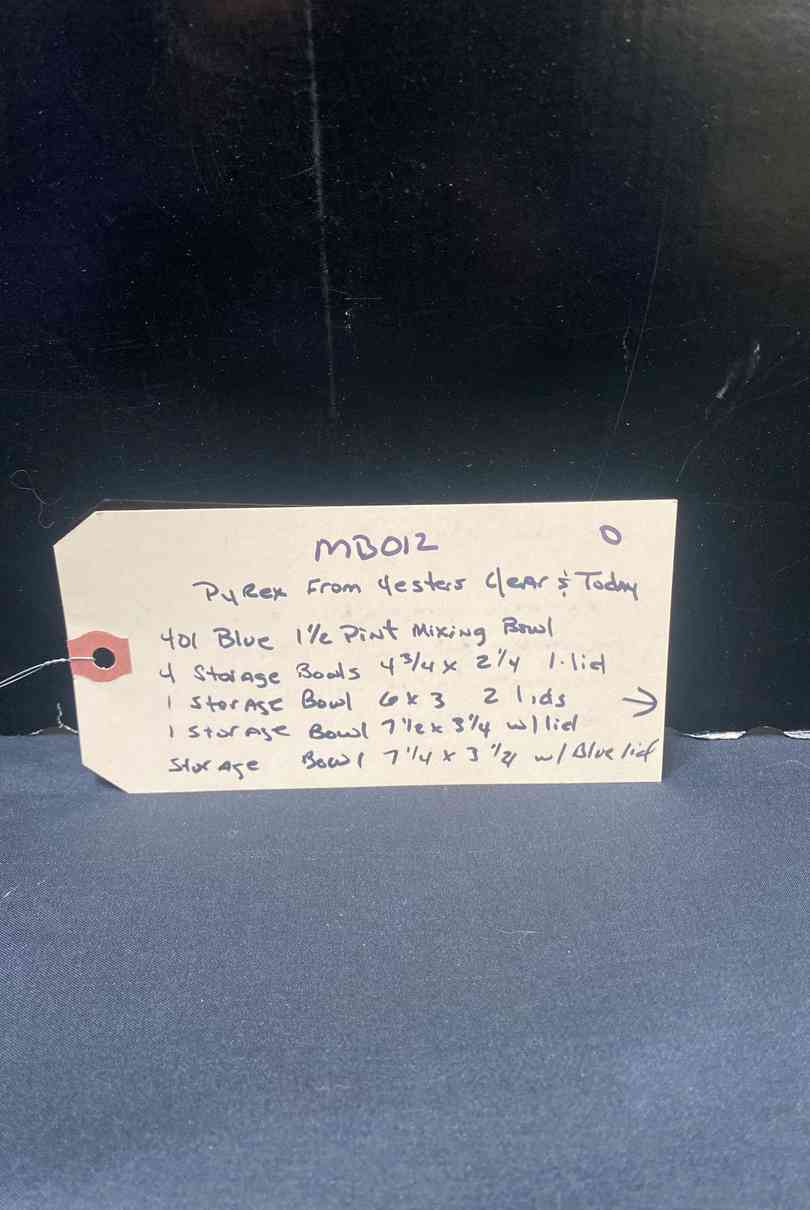 MB012 0
PyRex From Yesters Year & Today
401 Blue 1 1/2 Pint Mixing Bowl
4 Storage Bowls 4 3/4 x 2 1/4 1 - lid
1 Storage Bowl 6 x 3 2 lids →
1 Storage Bowl 7 1/2 x 3 1/4 w/ lid
Storage Bowl 7 1/4 x 3 1/2 w/ Blue lid